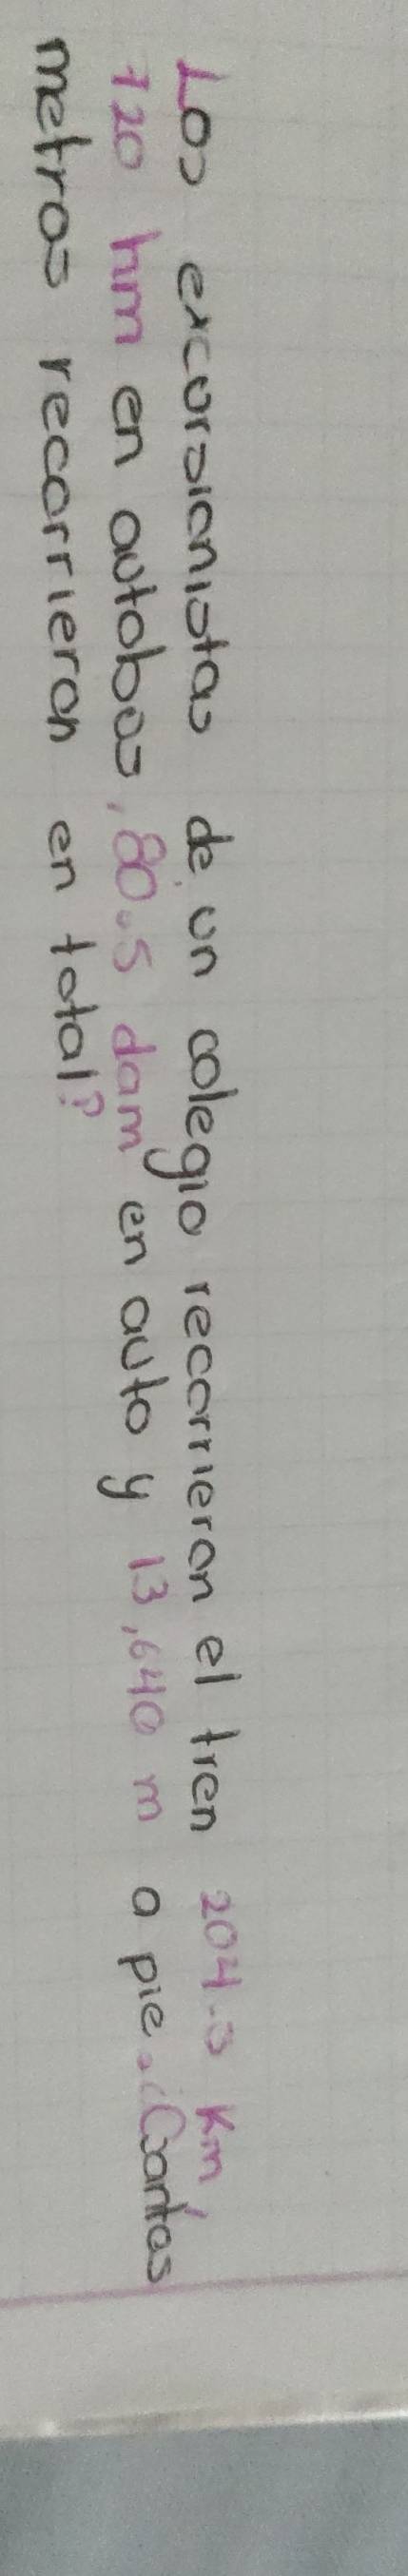 Los excursionistas de un colegio recorrieron el tren 204.5 Km,
720 hm en autobas, 80.5 dam en auto y 13,640 m a pie. ¿Cantas
metros recorrieron en total?